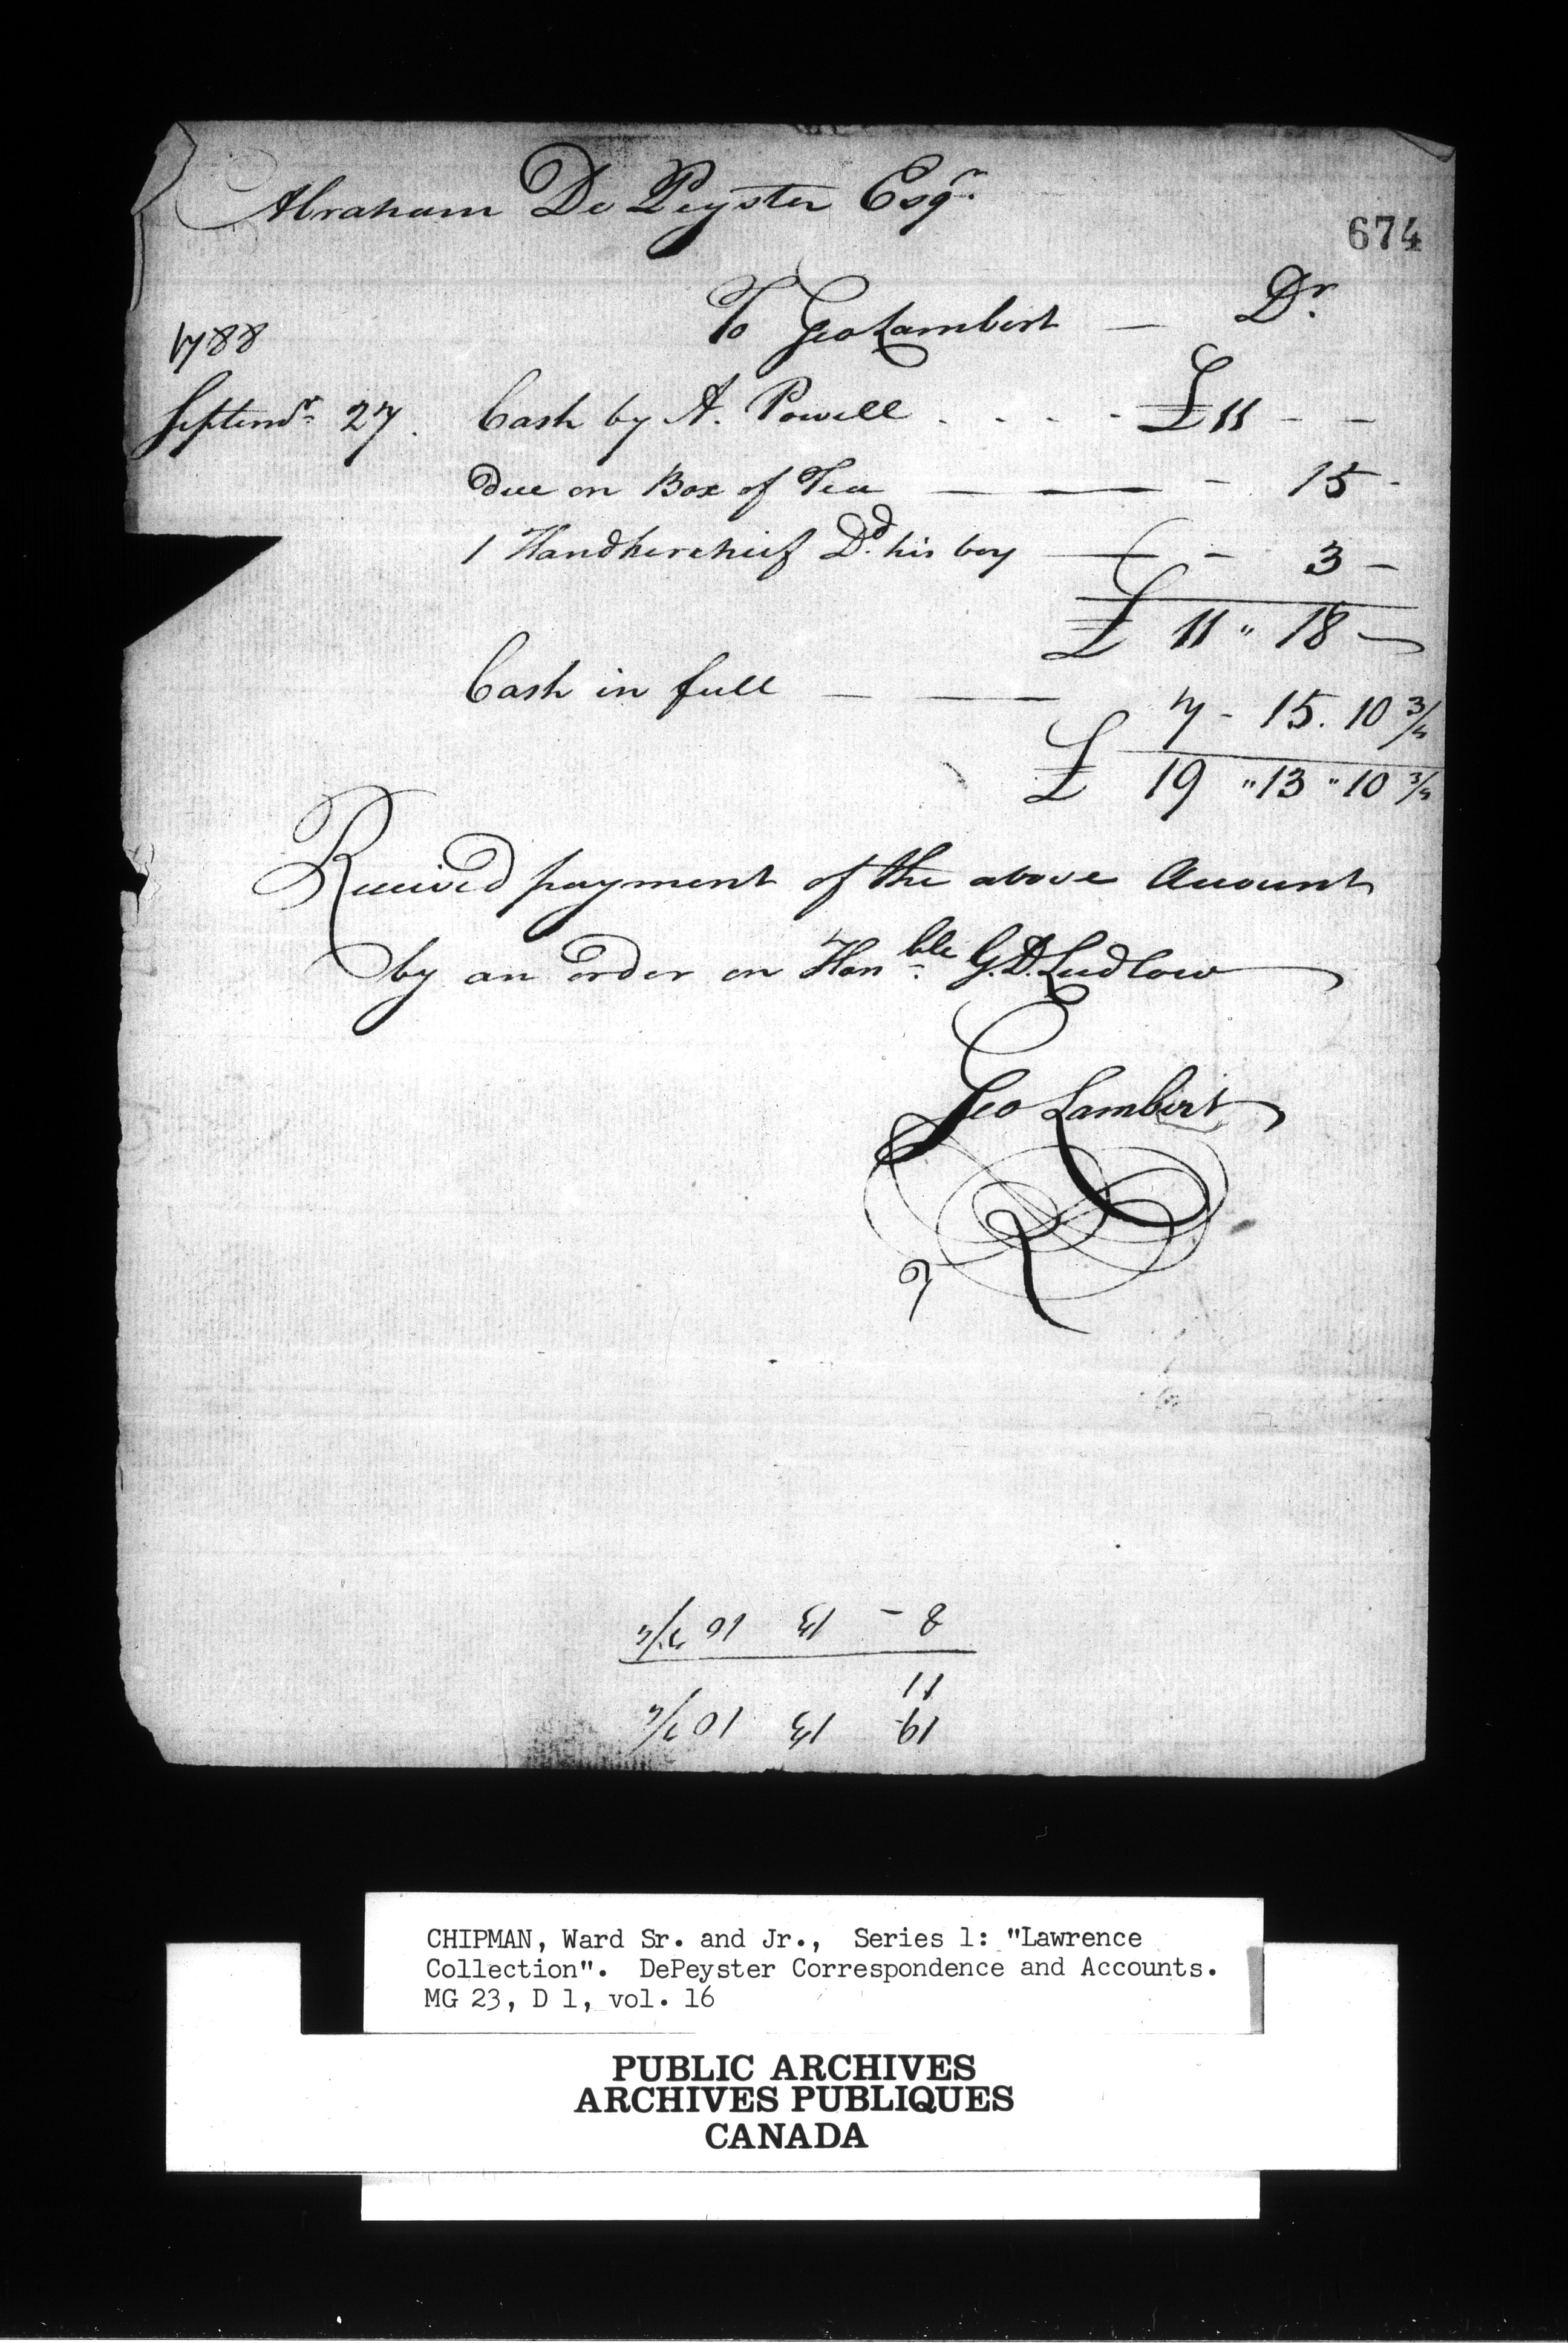 Abraham De Peyster Esqr.
674
To Geo Lambert — Dr.
1788
Septemr. 27. Cash by A. Powell . . . . £11 - -
Due on Box of Tea — — - 15 -
1 Handkercheif Dd. his boy — - 3 -
£ 11 " 18 —
Cash in full — — 7 - 15. 10 3/4
£ 19 " 13 " 10 3/4
Received payment of the above Account
by an order on Honble. G. D. Ludlow
Geo Lambert
19 13 10 3/4
11
8 - 13 10 3/4
CHIPMAN, Ward Sr. and Jr., Series 1: "Lawrence
Collection". DePeyster Correspondence and Accounts.
MG 23, D 1, vol. 16
PUBLIC ARCHIVES
ARCHIVES PUBLIQUES
CANADA